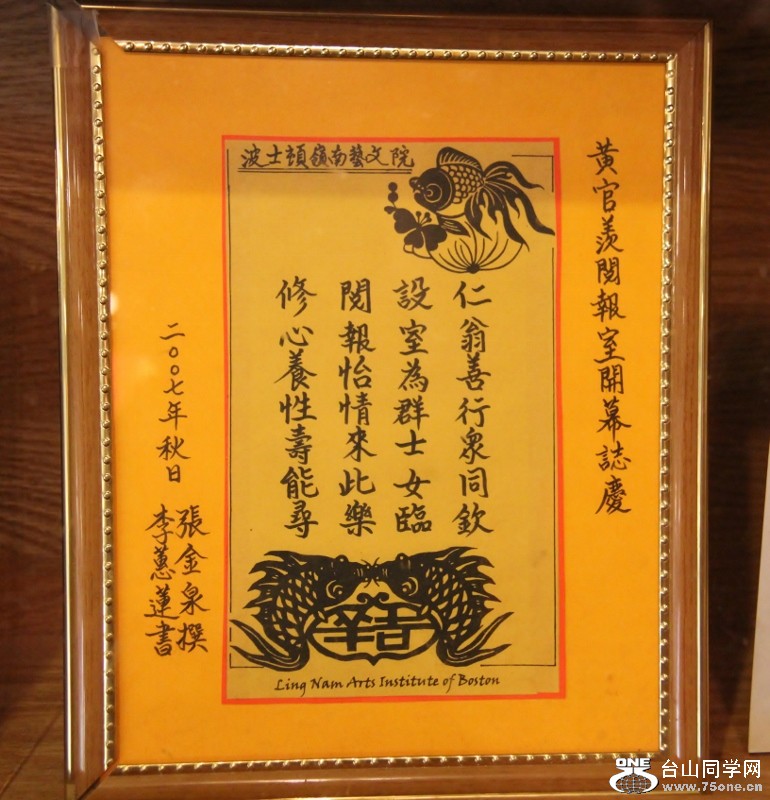 黃官羨閱報室開幕誌慶
波士頓嶺南藝文院
仁翁善行衆同欽
設室為群士女臨
閱報怡情來此樂
修心養性壽能尋
二〇〇七年秋日
張金泉撰
李蕙蓮書
Ling Nam Arts Institute of Boston
ONE
台山同学网
www.75one.cn